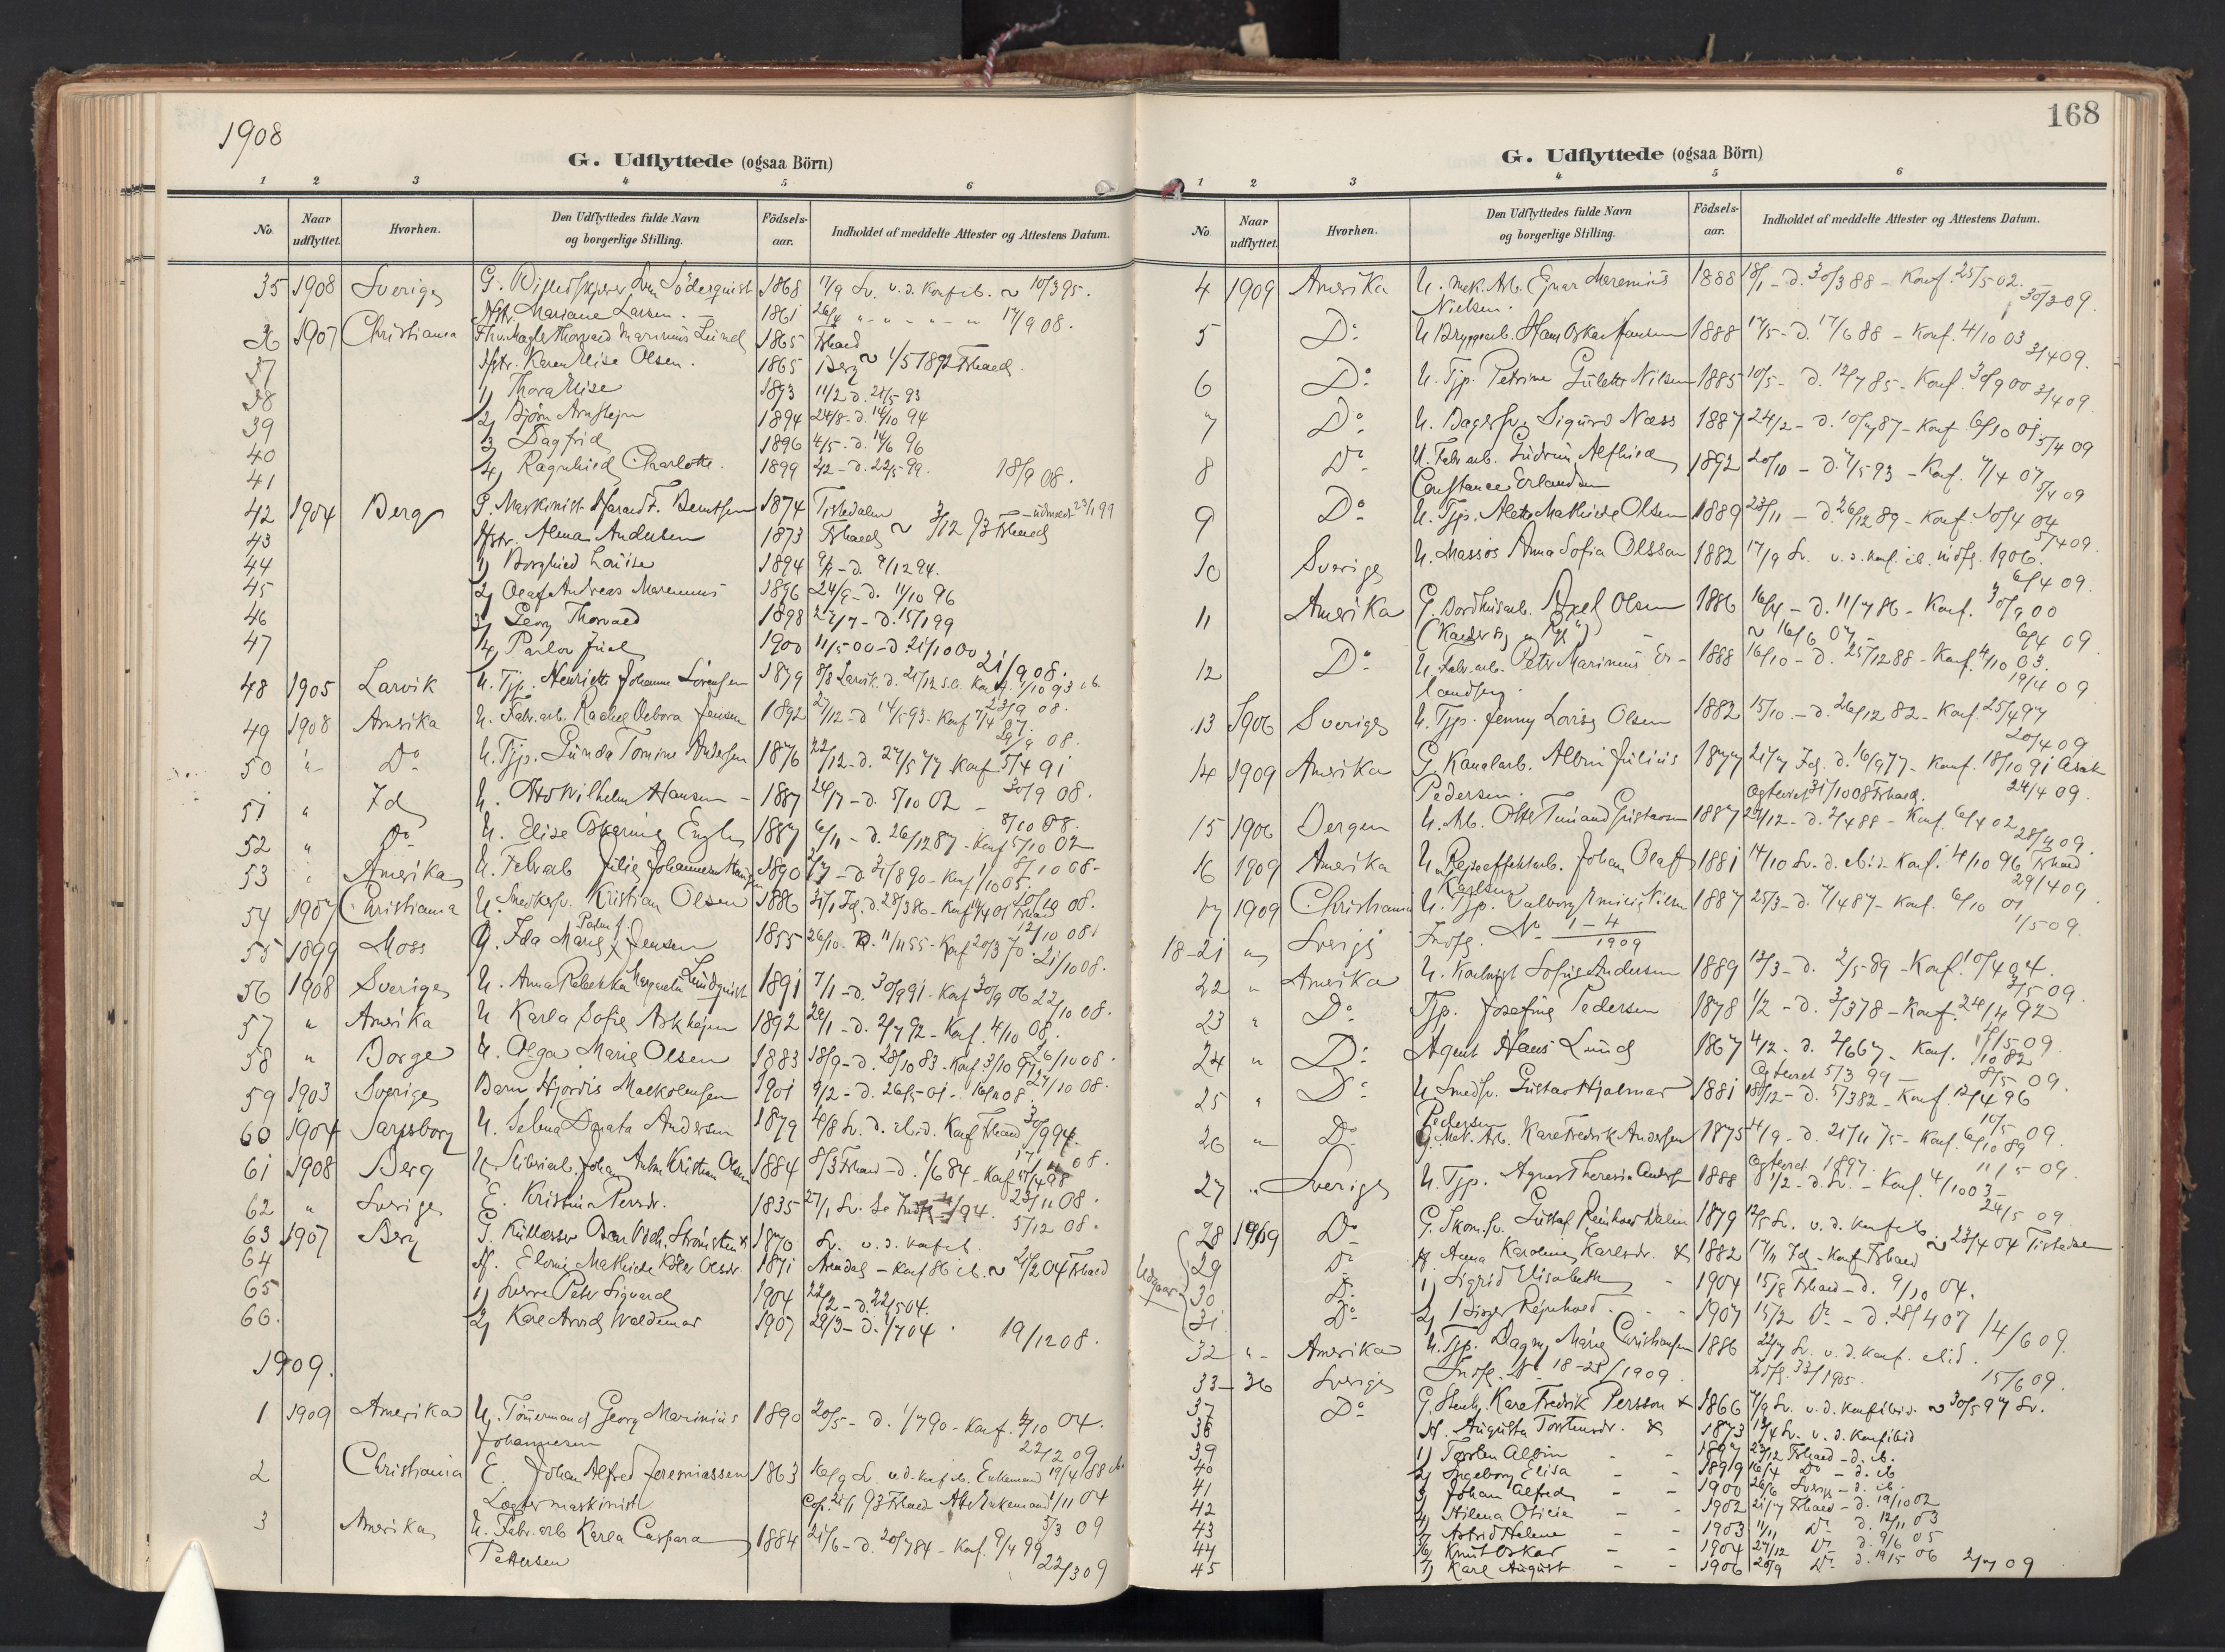 1908
G. Udflyttede (ogsaa Börn)
1 2 3 4 5 6
No. Naar udflyttet. Hvorhen. Den Udflyttedes fulde Navn og borgerlige Stilling. Födsels-aar. Indholdet af meddelte Attester og Attestens Datum.
35 1908 Sverige G. Söderquist 1868 17/9 Sv. u. d. Konf. ib. ~ 10/3 95.
Hstr. Mariane Larsen. 1861 17/9 08.
36 1907 Christiania Thorvard Marinius Lund 1865 Frhald
37 Hstr. Karen Elise Olsen. 1865 Berg ~ 1/5 1892 Frhald.
38 1) Thora Elise 1893 11/2 d. 21/5 93
39 2) Bjørn Arnstejn 1894 24/8 - d. 14/10 94
40 3 Dagfrid 1896 4/5 - d. 14/6 96
41 4) Ragnhild Charlotte. 1899 - d. 22/5 99. 18/9 08.
42 1904 Berg G. Maskinist Harald F. Berntsen 1874 Tistedalen
43 Hstr. Alma Andersen 1873 Frhald ~ 3/12 93 Frhald
44 1) Borghild Louise 1894 - d. 9/12 94.
45 2) Olaf Andreas Marenius 1896 24/9 - d. 11/10 96
46 3) Georg Thorvald 1898 27/7 - d. 15/1 99
47 4) 1900 11/5 00 - d. 21/10 00 21/9 08.
48 1905 Larvik U. Tjp. Henriette Johanne Sörensen 1879 8/8 Larvik. d. 21/12 s.a. Konf. 1/10 93 ib. 23/9 08.
49 1908 Amerika U. Fabr. arb. Rachel Debora Jensen 1892 27/12 - d. 14/5 93 - Konf. 7/4 07. 29/9 08.
50 " Do U. Tjp. Gunda Tomine Andersen 1876 22/12 - d. 27/5 77 - Konf. 5/4 91 30/9 08.
51 " Id U. Otto Wilhelm Hansen 1887 24/7 - d. 5/10 02 - 8/10 08.
52 " Do U. Elise Engh 1887 6/11 - d. 26/12 87 - Konf. 5/10 02 8/10 08.
53 " Amerika U. Fabr. arb. Julie Johannesen 1890 - d. 31/8 90 - Konf. 1/10 05. 10/10 08.
54 1907 Christiania U. Snedkersv. Kristian Olsen 1886 31/1 Id. d. 28/3 86 - Konf. 14/4 01 Frhald 12/10 08.
55 1899 Moss Ida Marie Jensen 1855 26/10 - d. 11/11 55 - Konf. 20/3 70. 21/10 08.
56 1908 Sverige U. Anna Rebekka Margareta Lundquist 1891 7/1 - d. 30/9 91 - Konf. 30/9 06 22/10 08.
57 " Amerika U Karla Sofie Askhejm 1892 28/1 - d. 2/7 92 - Konf. 4/10 08. 26/10 08.
58 " Borge U. Olga Marie Olsen 1883 18/9 - d. 28/10 83 - Konf. 3/10 97 27/10 08.
59 1903 Sverige Barn Hjördis Malkolmsen 1901 9/2 - d. 26/5 01 - 16/11 08
60 1904 Sarpsborg U. Selma Donata Andersen 1879 4/8 Sv. d. ib. d. Konf. Frhald 30/9 94.
61 1908 Berg U Johan Anton Kristian Olsen 1884 8/3 Frhald - d. 1/6 84 - Konf. 17/4 98 23/11 08.
62 " Sverige E. Kristina Persdr. 1835 27/1 Sv. 5/12 08.
63 1907 Berg G. Kullosser Oscar 1870 Sv. u. d. Konf. ib.
64 H. Elonie Mathilde Olsdr. 1871 Arendal - Konf 86 ib. ~ 21/2 04 Frhald
65 1) Sverre Peter Sigvard 1904 22/2 - d. 22/5 04.
66. 2) Karl Arvid Waldemar 1907 29/3 - d. 1/7 04. 19/12 08.
1909.
1 1909 Amerika U. Tömermand Georg Marinius Johannesen 1890 20/5 - d. 1/7 90 - Konf. 2/10 04. 22/2 09
2 Christiania E. Johan Alfred Jeremiassen 1863 16/9 Sv. u. d. Konf. ib. Enkemand 19/4 88 ib.
Logtermaskinist Cop. 21/1 93 Frhald Enkemand 1/11 04 5/3 09
3 Amerika U. Fabr. arb Karla Caspara Pettersen 1884 21/6 - d. 20/7 84 - Konf. 9/4 99 22/3 09
168
G. Udflyttede (ogsaa Börn)
1 2 3 4 5 6
No. Naar udflyttet. Hvorhen. Den Udflyttedes fulde Navn og borgerlige Stilling. Födsels-aar. Indholdet af meddelte Attester og Attestens Datum.
4 1909 Amerika U. Mek. Arb. Ejnar Marenius Nielsen. 1888 18/1 - d. 30/3 88 - Konf. 25/5 02. 30/3 09.
5 Do U Bryggearb. Hans Oskar Hansen 1888 17/5 - d. 17/6 88 - Konf. 4/10 03 3/4 09.
6 Do U. Tjp. Petrine Gulette Nilsen 1885 10/5 - d. 12/7 85 - Konf. 30/9 00 3/4 09
7 Do U. Bagersv. Sigurd Næss 1887 24/2 - d. 10/7 87 - Konf. 6/10 01 5/4 09
8 Do U. Fabr arb. Gudrun Alfhild Constance Erlandsen 1892 20/10 - d. 7/5 93 - Konf. 7/4 07 5/4 09
9 Do U. Tjp. Alette Mathilde Olsen 1889 23/11 - d. 26/12 89 - Konf. 10/4 04 5/4 09.
10 Sverige U. Massös Anna Sofia Olsson 1882 17/9 Sv. u. d. Konf. ib. indfl. 1906. 6/4 09.
11 Amerika G. Axel Olsen 1886 16/4 - d. 11/7 86 - Konf. 30/9 00
~ 16/6 07 6/4 09
12 Do U. Fabr. arb. Peter Marinius Erlandsen. 1888 16/10 - d. 25/12 88 - Konf. 4/10 03. 19/4 09
13 1906 Sverige U. Tjp. Jenny Lovise Olsen 1882 15/10 - d. 26/12 82 - Konf. 25/4 97 20/4 09
14 1909 Amerika G. Kanalarb. Albin Julius Pedersen. 1877 21/7 Id. d. 16/9 77 - Konf. 18/10 91 Asak
Ægteviet 31/10 08 Frhald. 24/4 09.
15 1906 Bergen U. Arb. Gustavsen 1887 27/12 - d. 2/4 88 - Konf. 6/4 02 28/4 09.
16 1909 Amerika U. Rejseeffektarb. Johan Olaf Karlsen 1881 14/10 Sv. d. ib. d. Konf. 4/10 96 Frhald 29/4 09
17 1909 Christiania U. Tjp. Valborg Emilie Nilsen 1887 25/3 - d. 7/4 87 - Konf. 6/10 01 1/5 09.
18-21 " Sverige Indfl. No 1-4 / 1909
22 " Amerika U. Sofie Andersen 1889 12/3 - d. 2/5 89 - Konf. 10/4 04. 3/5 09.
23 " Do Tjp. Josefine Pedersen 1878 1/2 - d. 3/3 78 - Konf. 24/4 92
24 " Do Agent Hans Lund 1867 4/12 - d. 2/6 67 - Konf. 1/10 82
Ægteviet 5/3 99 - 8/5 09.
25 " Do U Smedsv. Gustav Hjalmar Pedersen 1881 18/12 - d. 5/3 82 - Konf. 12/4 96 10/5 09.
26 " Do G. Mek. Arb. Karl Fredrik Andersen 1875 14/9 - d. 21/11 75 - Konf. 6/10 89
Ægteviet 1897. 11/5 09.
27 " Sverige U. Tjp. Agnes Theresia 1888 1/2 - d. Sv. - Konf. 4/10 03 - 24/5 09
28 1909 Do G. Skom. sv. Gustaf Reinhold Walin 1879 12/5 Sv. u. d. Konf. ib. ~ 23/4 04 Tistedalen
Udgaar
29 Do H. Anna Karoline Karlsdr. 1882 17/11 Id - Konf Frhald
30 Do 1) Sigrid Elisabeth - 1904 15/8 Frhald - d. 9/10 04.
31 Do 2) Rejnhold - - 1907 15/2 Do - d. 28/4 07 14/6 09.
32 " Amerika U. Tjp. Dagny Marie Christiansen 1886 22/7 Sv. u. d. Konf. ibid. Indfl. 33/1905. 15/6 09.
33-36 Sverige Indfl. No 18-21/1909.
37 Do G. Stenh. Karl Fredrik Persson 1866 7/9 Sv. u. d. Konf. ibid. ~ 30/5 97 Sv.
38 H. Augusta Torstensdr. 1873 Sv. u. d. Konf. ibid
39 1) Torsten Albin - - 1897 23/12 Frhald - d. ib.
40 2) Ingeborg Elisa - - 1899 16/4 Do - d. ib
41 3) Johan Alfred - - 1900 26/6 Sverige - d. ib.
42 4) Hilma Otilia - - 1902 21/7 Frhald - d. 19/10 02
43 5) Astrid Helene - - 1903 11/11 Do d. 12/11 03
44 6) Knut Oskar - - 1904 27/12 Do d. 9/6 05
45 7) Karl August - - 1906 20/9 Do d. 19/5 06 2/7 09